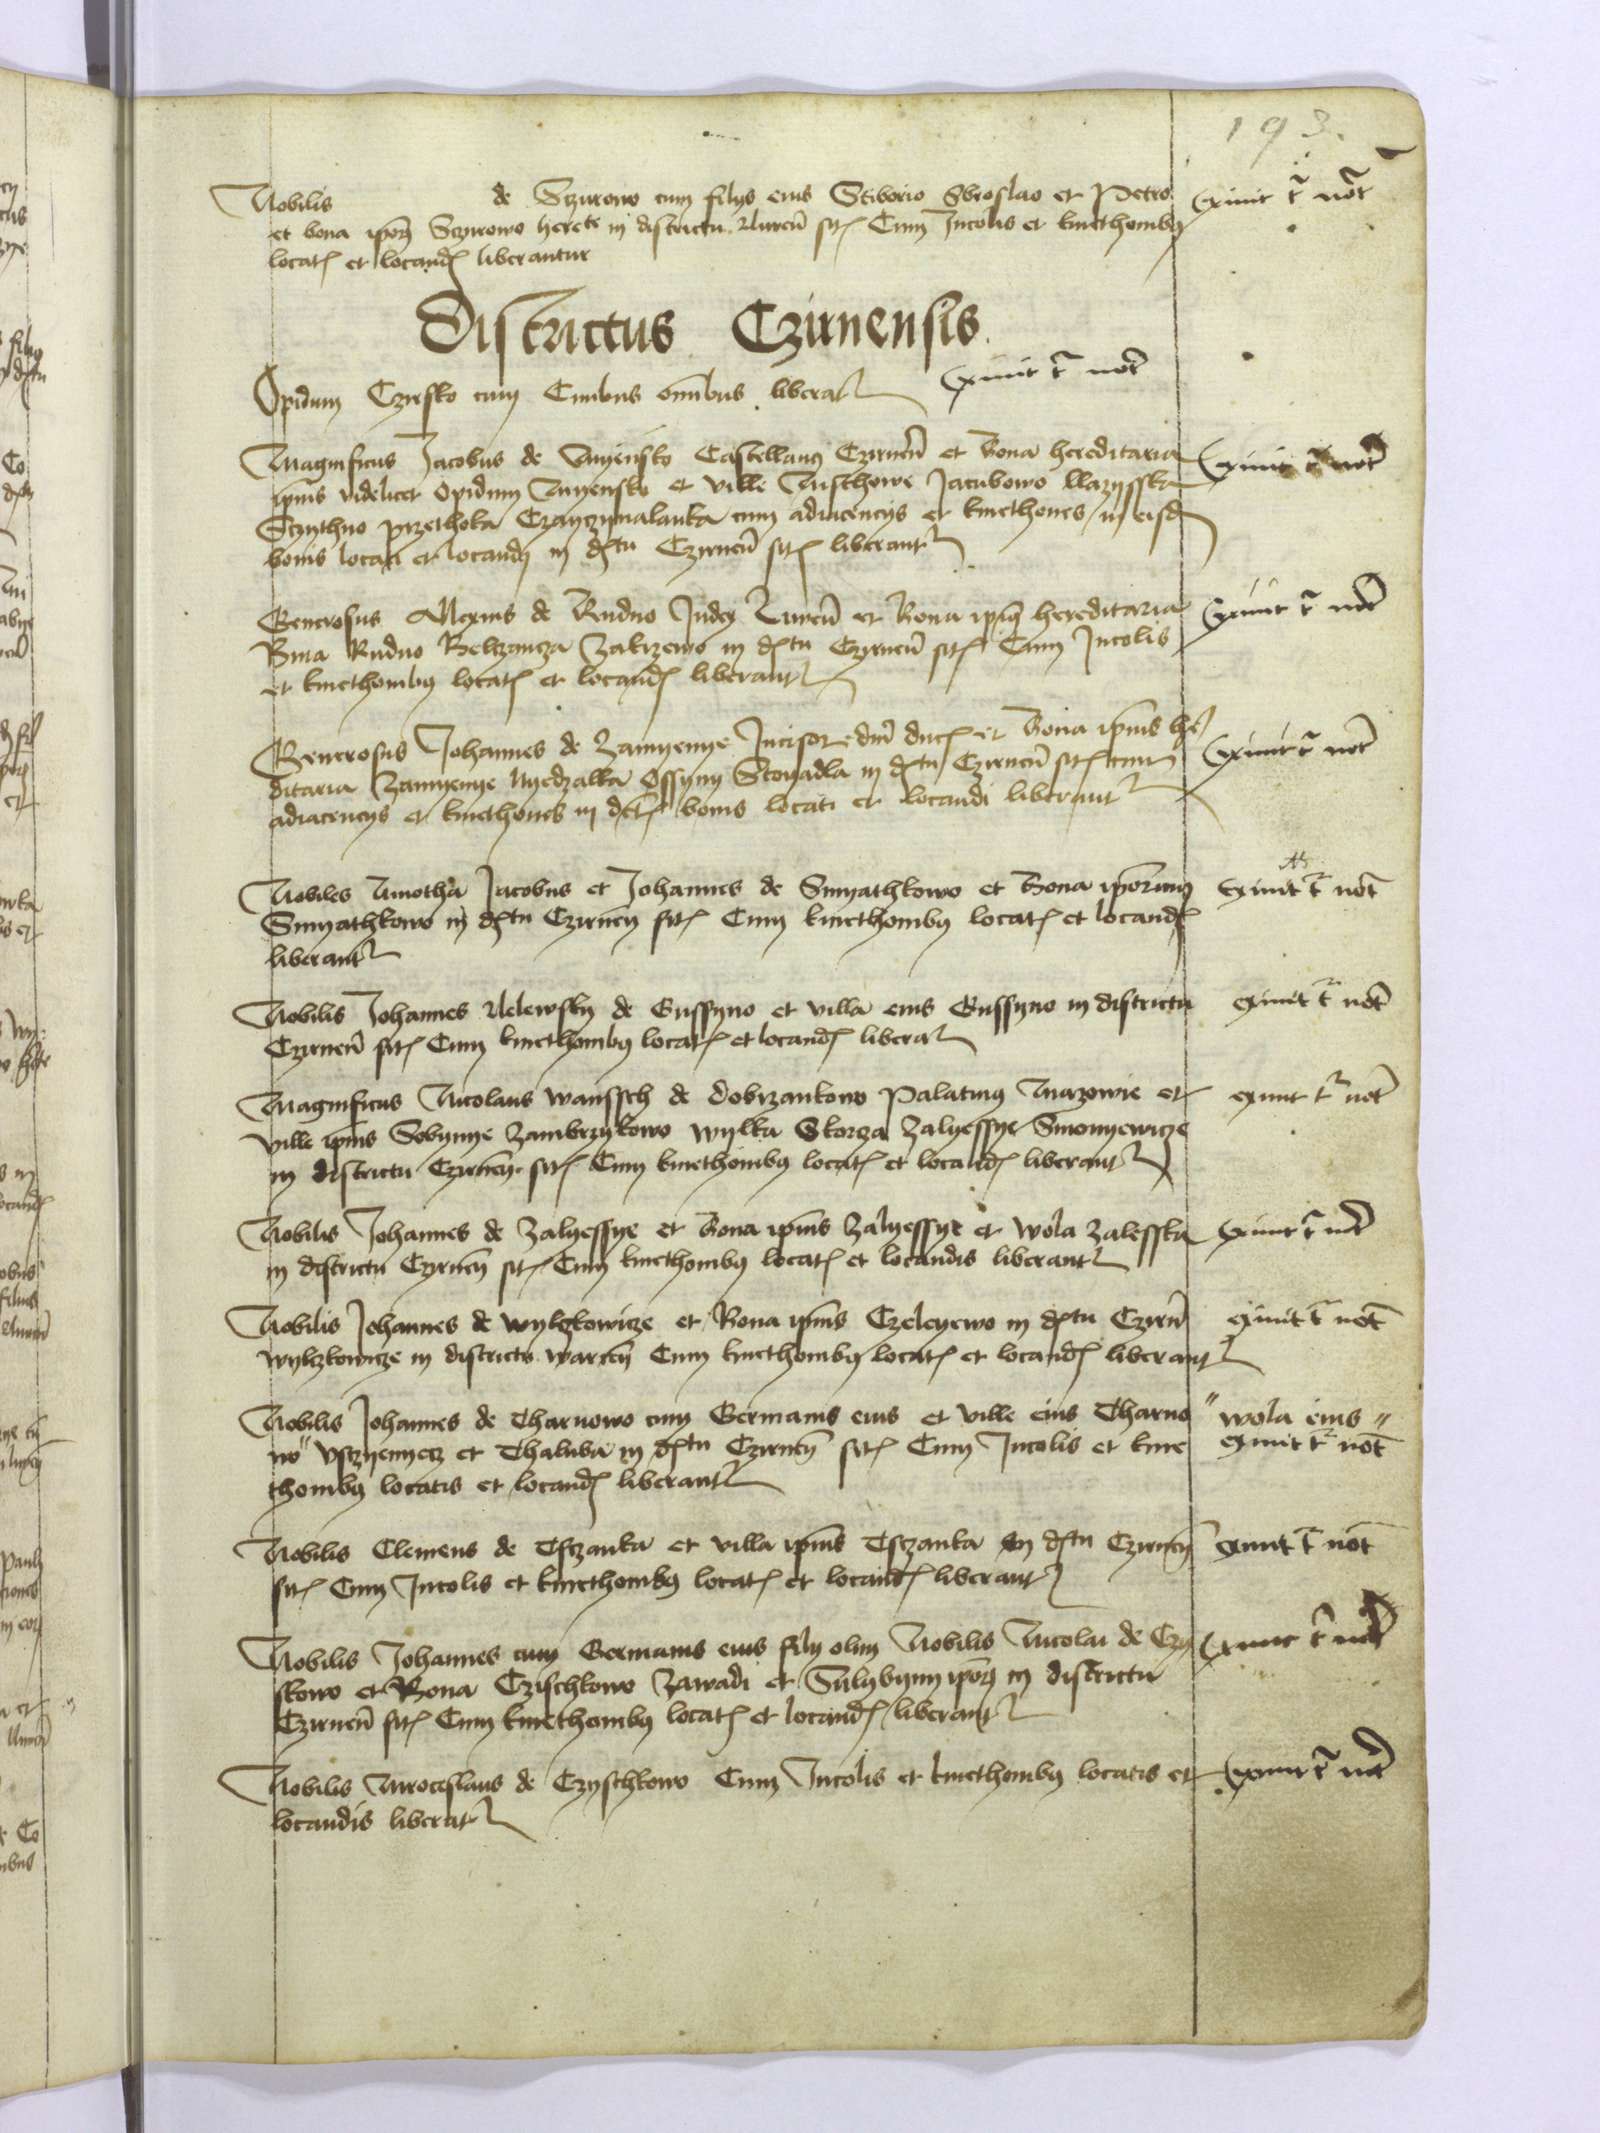 193.
Nobilis de Sczurowo cum filys eius Stiborio Sbroslao et Petro
et bona ipoꝝ Sczurowo herete in districtu Liwen̄ sitꝭ Cum Incolis et kmethonibꝰ
locatꝭ et locandꝭ liberantur
exiuit tꝛ not̄
Districtus Czirnensis.
Opidum Czirsko cum Ciuibus om̄ibus liberat
exiuit tꝛ not̄
Magnificus Jacobus de Myensko Castellanꝰ Czirnen̄ et bona hereditaria
ipīus videlicet Opidum Myensko et ville Jacubowo
Sczythno przethoka cum adiacencys et kmethones in eisd
bonis locati et locandi in dꝭtu Czirnen̄ sitꝭ liberant
exiuit tꝛ not̄
Generosus Alexius de Rudno Judex Liwen̄ et bona ipiꝰ hereditaria
Rudno Zakrzewo in dꝭtu Czirnen̄ sitꝭ Cum Incolis
et kmethonibꝰ locatꝭ et locandꝭ liberant
exiuit tꝛ not̄
Generosus Johannes de Zamyenye Incisor dn̄i ducꝭ et bona ipīus he
ditaria Zamyenye Ossyny Stoyadla in dꝭtu Czirnen̄ sitꝭ cum
adiacencys et kmethones in dc̄tꝭ bonis locati et locandi liberant
exiuit tꝛ not̄
Nobiles Jacobus et Johannes de Smyathkowo et bona ipōrum
Smyathkowo in dꝭtu Czirnen̄ sitꝭ Cum kmethonibꝰ locatꝭ et locandꝭ
liberant
exiuit tꝛ not̄
Nobilis Johannes de Gussyno et villa eius Gussyno in districtu
Czirnen̄ sitꝭ Cum kmethonibꝰ locatꝭ et locandꝭ libera
exiuit tꝛ not̄
Magnificus Nicolaus wanssch de dobrzankowo Palatinꝰ Mazowie et
ville ipīus Sobynye Zambrzykowo wylka Skorcza Zalyessye
in districtu Czirnen̄ sitꝭ Cum kmethonibꝰ locatꝭ et locandꝭ liberant
exiunt tꝛ not̄
Nobilis Johannes de Zalyessye et bona ipīus Zalyessye et wola Zalesska
in districtu Czirnen̄ sitꝭ Cum kmethonibꝰ locatꝭ et locandis liberant
exiunt tꝛ not̄
Nobilis Johannes de wylczkowicze et bona ipīus Czeleyewo in dꝭtu Czirn̄
wylczkowicze in districtu warcen̄ Cum kmethonibꝰ locatꝭ et locandꝭ liberant
exiuit tꝛ not̄
Nobilis Johannes de Tharnowo cum Germanis eius et ville eius Tharno
wo" Vsczyenyecz et Thaluba in dꝭtu Czirnen̄ sitꝭ Cum Incolis et kme
thonibꝰ locatis et locandꝭ liberant
" wola eius "
exiuit tꝛ not̄
Nobilis Clemens de Tsczanka et villa ipīus Tsczanka in dꝭtu Czirnen̄
sitꝭ Cum Incolis et kmethonibꝰ locatꝭ et locandꝭ liberant
exiuit tꝛ not̄
Nobilis Johannes cum Germanis eius fily olim Nobilis Nicolai de Czy
skowo et bona Czischkowo Zawadi et ipoꝝ in districtu
Czirnen̄ sitꝭ Cum kmethonibꝰ locatꝭ et locandꝭ liberant
exiunt tꝛ not̄
Nobilis Miroslaus de Czyschkowo Cum Incolis et kmethonibꝰ locatis et
locandis liberat
exiunt tꝛ not̄